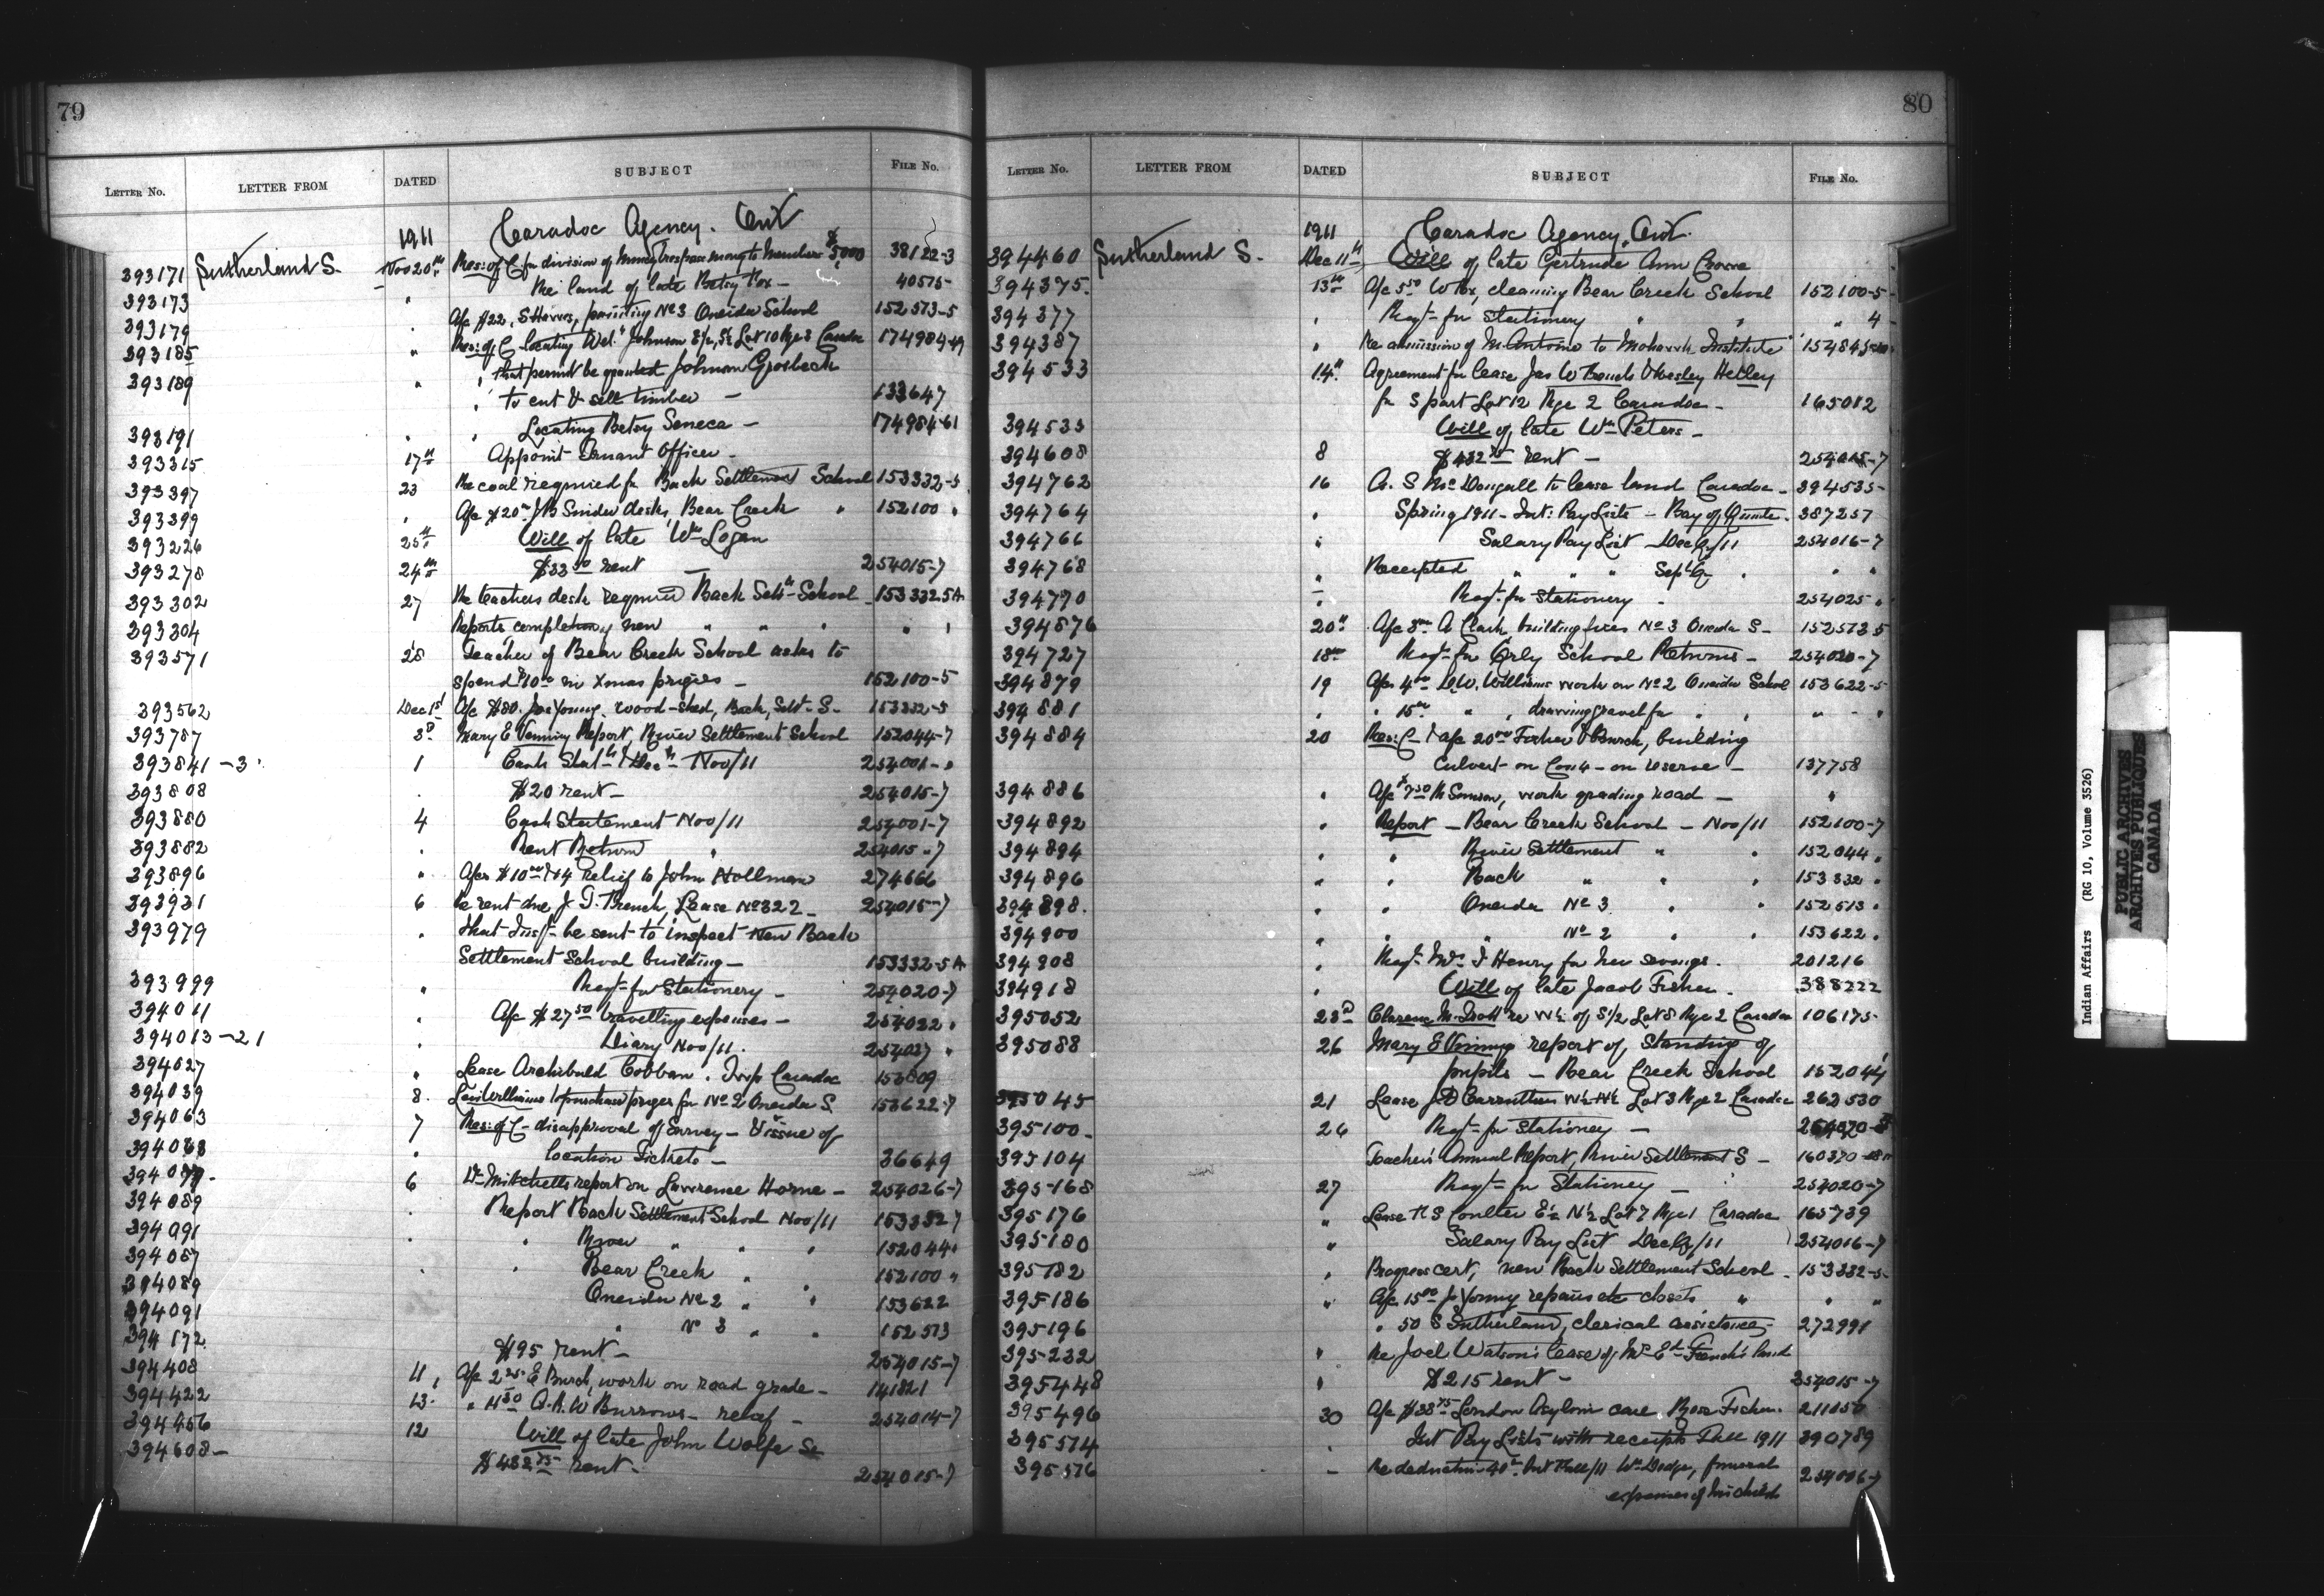 79
LETTER No. LETTER FROM DATED SUBJECT FILE No.
1911 Caradoc Agency. Ont
393171 Sutherland S. Nov 20th Res: of C for division of money Trespass money to Members $5,000 38122-3
393173 " Re land of late Betsy Fox - 40575-
393179 " A/c $22, S painting No 3 Oneida School 152573-5
393185 " Res: of C locating Wel. Johnson Lot 10 Rge 3 Caradoc 174984-49
393189 " " that permit be granted Johnson Grosbeck
" to cut & sell timber - 133647
393191 " " Locating Betsy Seneca - 174984-61
393315 17th Appoint Truant Officer -
393397 23 Re coal required for Back Settlement School 153332-5
393399 " A/c $20 J B Snider desks, Bear Creek " 152100 "
393226 25th Will of late Wm Logan
393278 24th $33.50 rent - 254015-7
393302 27 Re teachers desk required Back Settt School 153332-5A
393304 Reports completion of new " " " " "
393571 28 Teacher of Bear Creek School asks to
spend $10.00 in Xmas prizes - 152100-5
393562 Dec 1st A/c $80. Jos Young, wood-shed, Back, Settt S. 153332-5
393787 3d Mary E Venning Report, River Settlement School 152044-7
393841-3 1 Cash Statt Nov/11 254001-"
393808 $20 rent - 254015-7
393880 4 Cash Statement Nov/11 254001-7
393882 " Rent Return " 254015-7
393896 " A/cs $10.00 & 4 relief to John Hollman 274666
393931 6 Re rent due J. G. French, Lease No 322 - 254015-7
393979 " that Inspt be sent to inspect New Back
Settlement School building - 153332-5A
393999 " Reqt for Stationery - 254020-7
394011 " A/c $27.50 travelling expenses - 254022 "
394013-21 " Diary Nov/11. 254027 "
394027 " Lease Archibald Cobban. Twp Caradoc 153809
394039 8 Levi Williams to purchase prizes for No 2 Oneida S. 153622-7
394063 7 Res: of C - disapproval of Survey - & issue of
394068 " location Tickets - 36649
394077 6 Dr Mitchells report on Lawrence Horne - 254026-7
394089 Report Back Settlement School Nov/11 153332-7
394091 " " River " " " 152044 "
394087 " " Bear Creek " 152100 "
394089 Oneida No 2 " " 153622
394091 " No 3 " " 152573
394172 $95 rent - 254015-7
394408 11 A/c 2.25 E Burch, work on road grade - 141821
394422 13 " 11.50 A. R. W Burrows - relief - 254014-7
394456 12 Will of late John Wolfe Sr
394608- $432.75 rent - 254015-7
80
LETTER No. LETTER FROM DATED SUBJECT FILE No.
1911 Caradoc Agency, Ont.
394460 Sutherland S. Dec 11th Will of late Gertrude Ann Crowe
394375. 13th A/c 5.50 W Fox, cleaning Bear Creek School 152100-5
394377 " Reqt for Stationery " " " 4
394387 " Re admission of M. Antoine to Mohawk Institute 154845
394533 14th Agreement for lease Jas W French & Wesley Hetley
for S part Lot 12 Rge 2 Caradoc - 165012
394535 Will of late Wm Peters -
394608 8 $432.75 rent - 254015-7
394762 16 A. S McDougall to lease land Caradoc - 394535-
394764 " Spring 1911 - Int: Pay Lists - Bay of Quinte. 387257
394766 " Salary Pay List Dec Q/11 254016-7
394768 " Receipted " " " Sept Q " "
394770 " Reqt for Stationery 254025 "
394876 20th A/c 3.00 A Clark, building fires No 3 Oneida S - 152573-5
394727 18th Reqt for Qrly School Returns - 254020-7
394879 19 A/cs 4.00 D W. Williams work on No 2 Oneida School 153622-5
394881 " " 15.00 " " drawing gravel for " " "
394884 20 Res: C - & A/c 20.00 Fisher & Burch, building
Culvert on Con 4 - on reserve - 137758
394886 " A/c $7.50 M Samson, work grading road - "
394892 " Report - Bear Creek School - Nov/11 152100-7
394894 " " River Settlement " " 152044 "
394896 " " Back " " " 153332 "
394898. " " Oneida No 3 " " 152513 "
394900 " " " No 2 " " 153622 "
394908 " Reqt Mrs I Henry for her savings. 201216
394918 " Will of late Jacob Fisher. 388222
395052 23d Clarence McGrath re W½ of S½ Lot 8 Rge 2 Caradoc 106175-
395088 26 Mary E Venning report of, standing of
pupils - Bear Creek School 152044
395045 21 Lease J D Carruthers N½ Lot 3 Rge 2 Caradoc 262530
395100 26 Reqt for Stationery -
395104 Teacher's Annual Report, River Settlement S - 160370
395168 27 Reqt for Stationery - 254020-7
395176 " Lease R S Coulter E½ N½ Lot 7 Rge 1 Caradoc 165739
395180 " Salary Pay List Dec Q/11 254016-7
395182 " Progress cert, new Back Settlement School - 153332-5-
395186 " A/c 15.00 Jos Young repairs etc closets " " "
395196 " " 50 S Sutherland, clerical assistance, 272991
395232 " Re Joel Watson's lease of Mrs Ed. French's land
395448 " $215 rent - 254015-7
395496 30 A/c $38.75 London Asylum care Rose Fisher. 211050
395574 " Int Pay Lists with receipts Fall 1911 390789
395576 - Re deduction 40.00 Int Fall/11 Wm Dodge, funeral 254006-7
expenses of his child
Indian Affairs (RG 10, Volume 3526)
PUBLIC ARCHIVES
ARCHIVES PUBLIQUES
CANADA